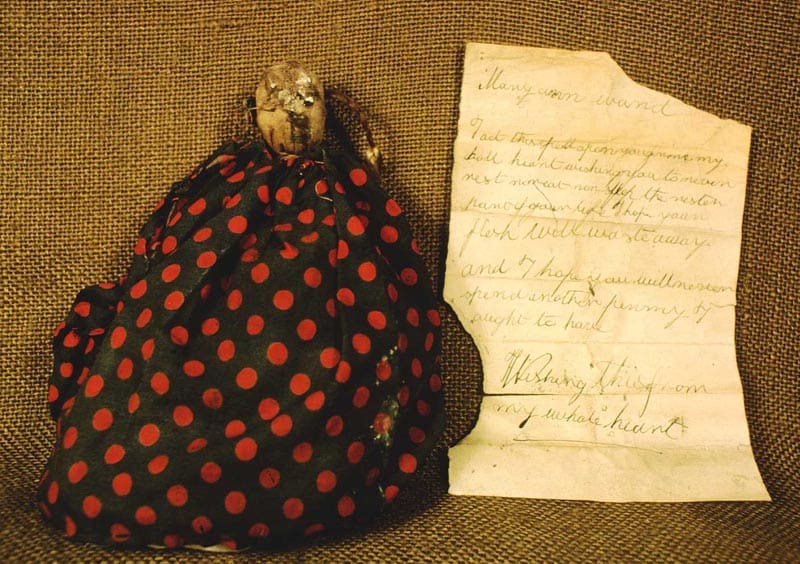 Mary ann ward
I act this spell upon you from my
holl heart wishing you to never
rest nor eat nor sleep the resten
part of your life I hope your
flesh will waste away
and I hope you will never
spend another penny I
ought to have
Wishing this from
my whole heart